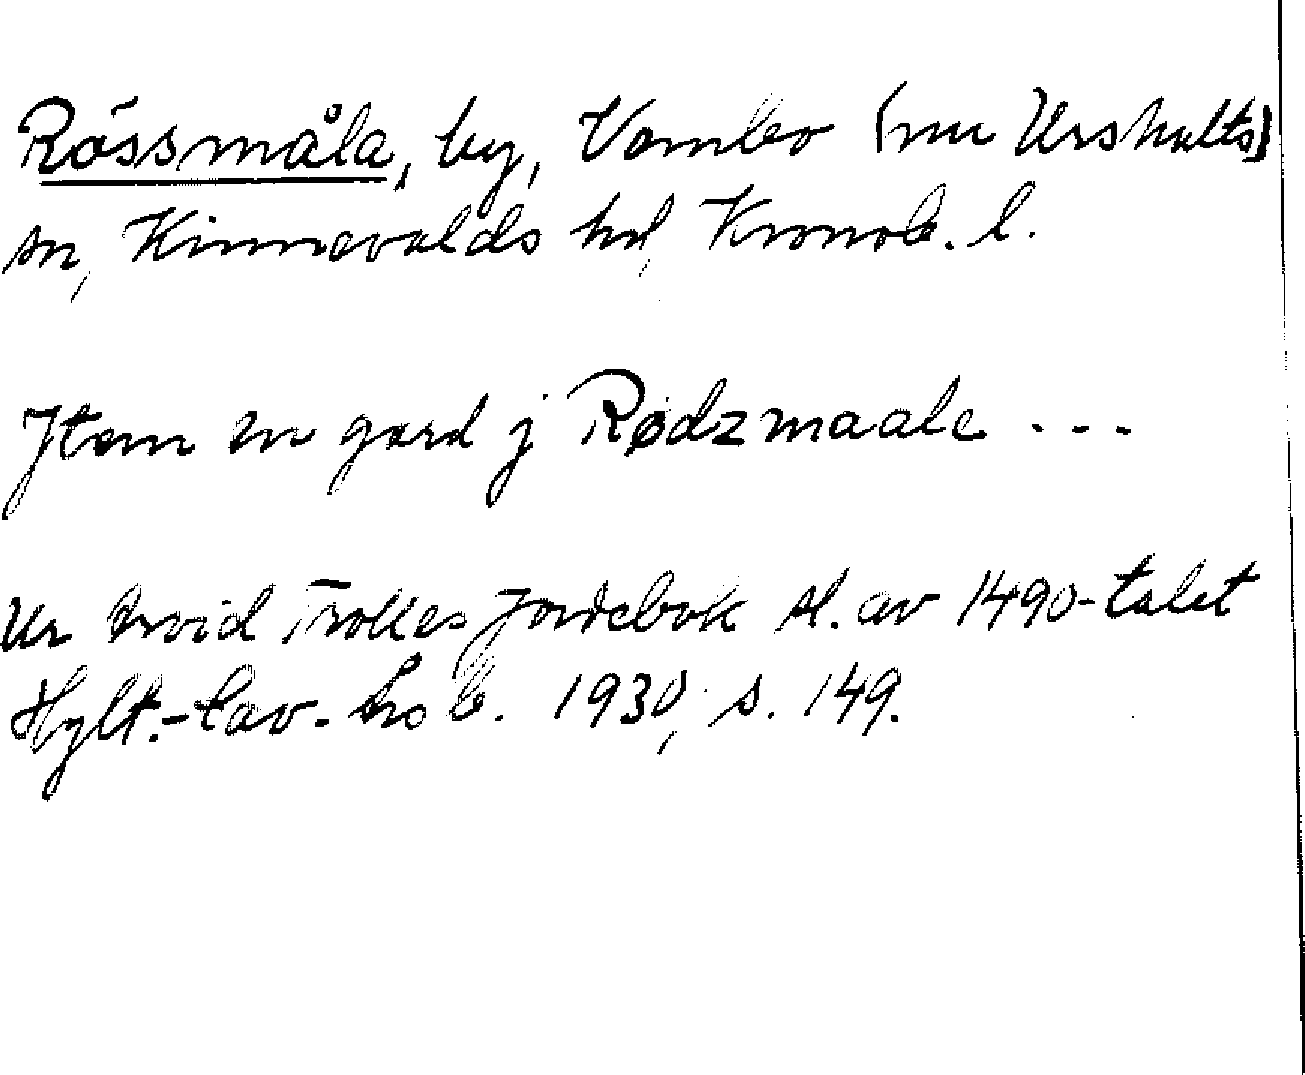 Rössmåla, by, Vembo (nu Urshults)
sn, Kinnevalds hd, Kronob. l.
Jtem en gard j Rødzmaale ...
Ur Arvid Trolles Jordebok sl. av 1490-talet
Hylt.-Cav. årsb. 1930, s. 149.